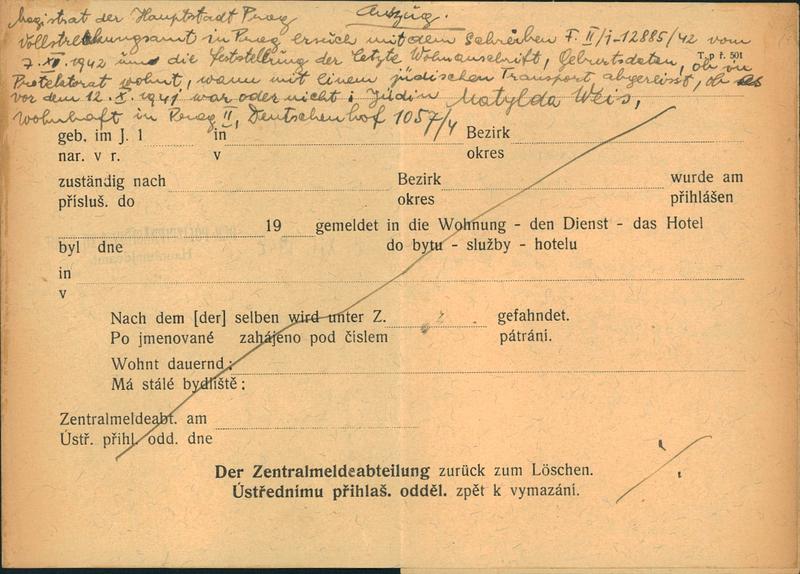 Magistrat der Hauptstadt Prag Auszug.
Vollstreckungsamt in Prag ersuch mit dem Schreiben F. II/j-12885/42 vom
7. XII. 1942 um die Feststellung der letzte Wohnanschrift, Geburtsdaten, ob im
T. p ř. 501
Protektorat wohnt, wann mit einem jüdischen Transport abgereisst, ob es
vor dem 12. X. 1941 war oder nicht; Jüdin Matylda Weis,
wohnhaft in Prag II, Deutschenhof 1057/4
geb. im J. 1 in Bezirk
nar. v r. v okres
zuständig nach Bezirk wurde am
přísluš. do okres přihlášen
19 gemeldet in die Wohnung - den Dienst - das Hotel
byl dne do bytu - služby - hotelu
in
v
Nach dem [der] selben wird unter Z. gefahndet.
Po jmenované zahájeno pod číslem pátrání.
Wohnt dauernd:
Má stálé bydliště:
Zentralmeldeabt. am
Ústř. přihl. odd. dne
Der Zentralmeldeabteilung zurück zum Löschen.
Ústřednímu přihlaš. odděl. zpět k vymazání.